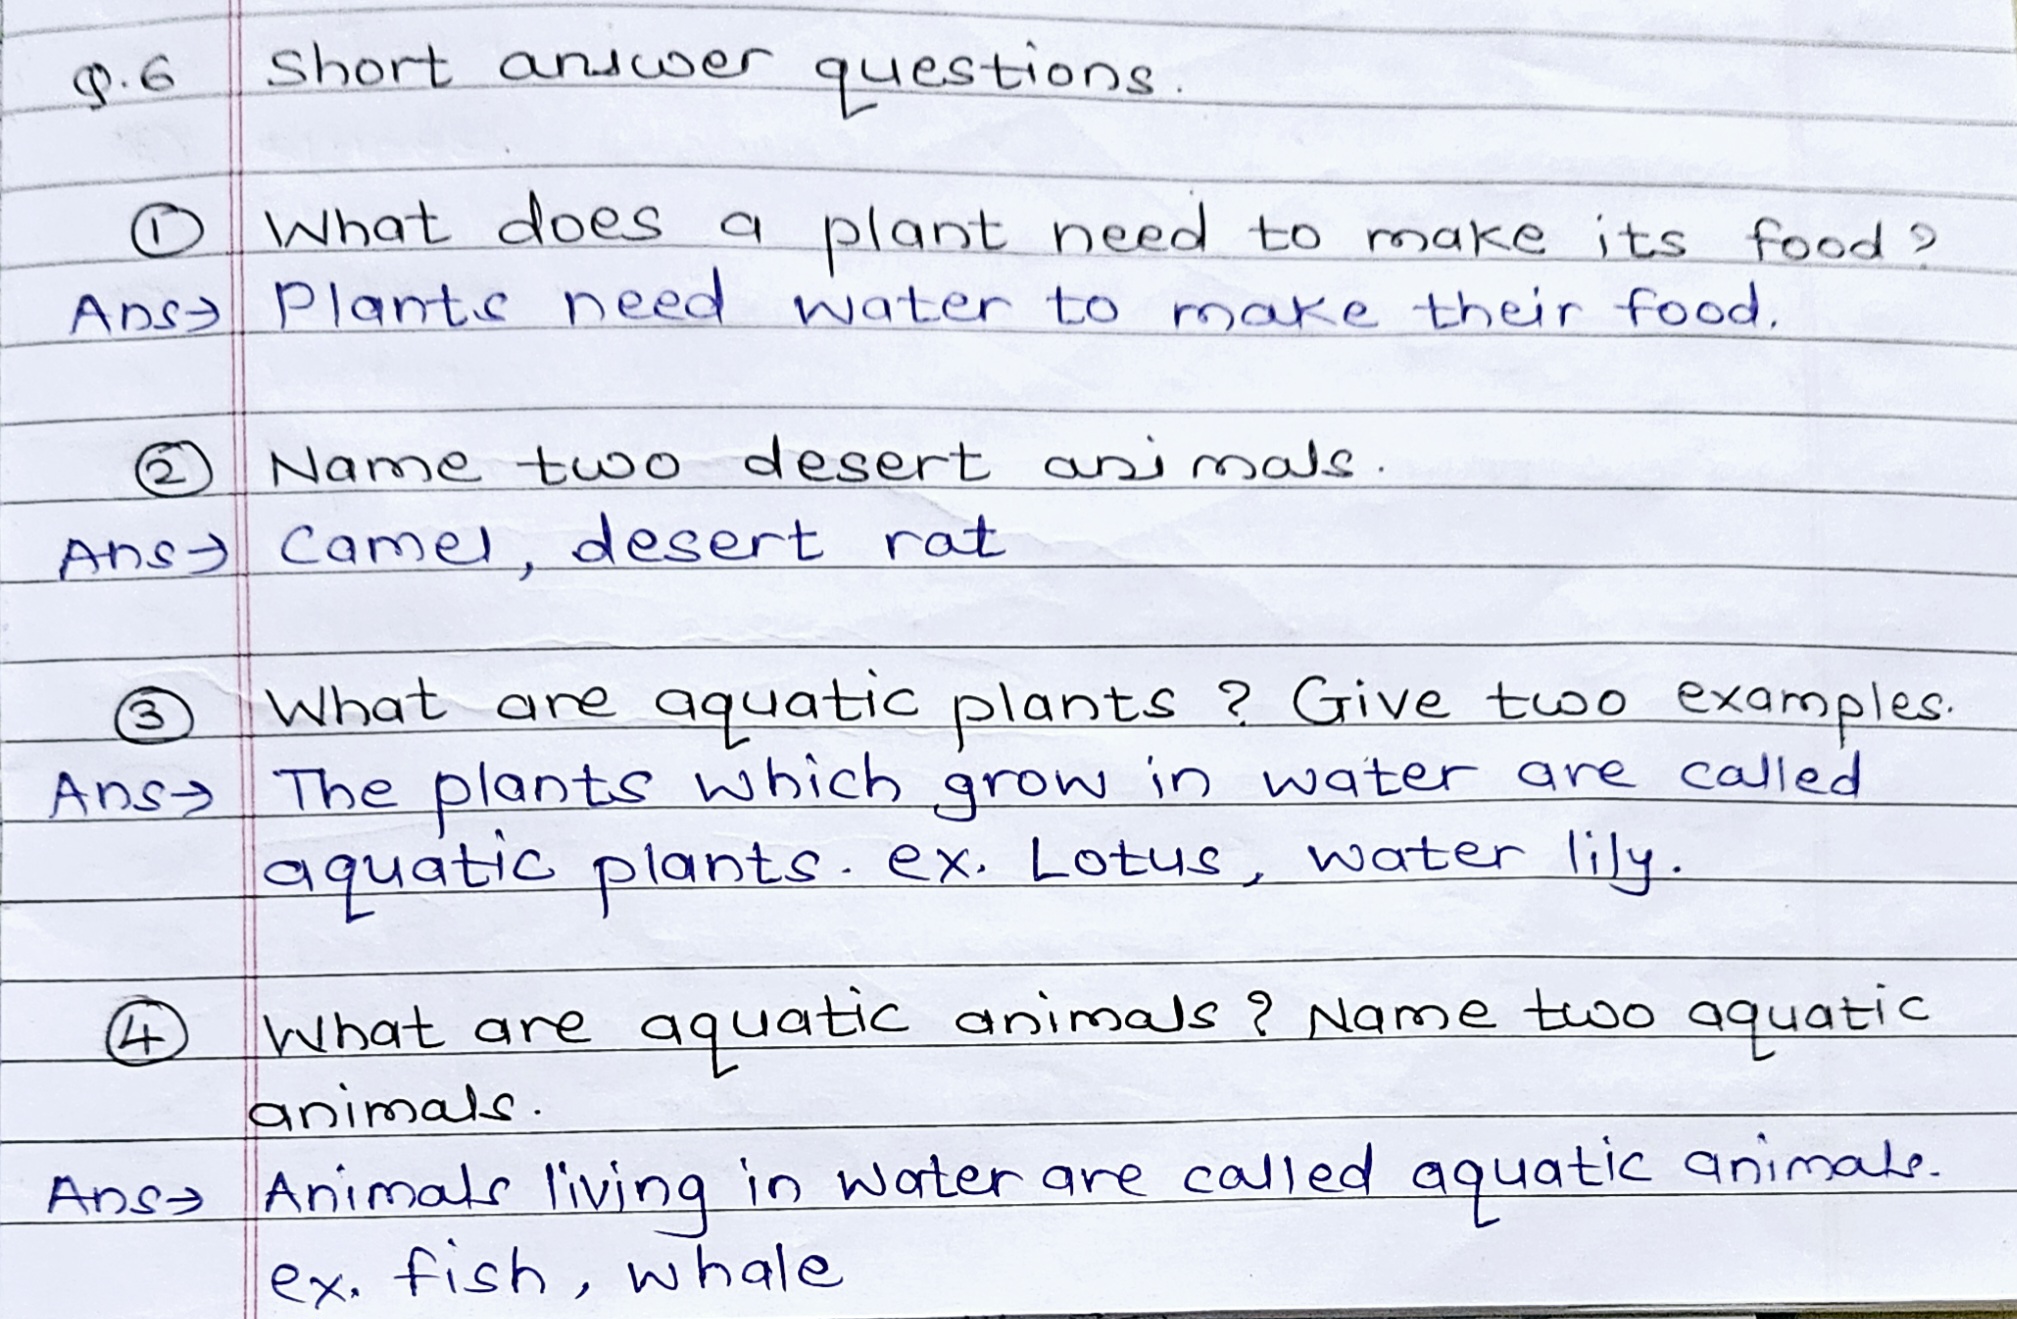 Q.6 Short answer questions.
① What does a plant need to make its food?
Ans→ Plants need water to make their food.
② Name two desert animals.
Ans→ Camel, desert rat
③ What are aquatic plants? Give two examples.
Ans→ The plants which grow in water are called
aquatic plants. ex. Lotus, water lily.
④ What are aquatic animals? Name two aquatic
animals.
Ans→ Animals living in water are called aquatic animals.
ex. fish, whale